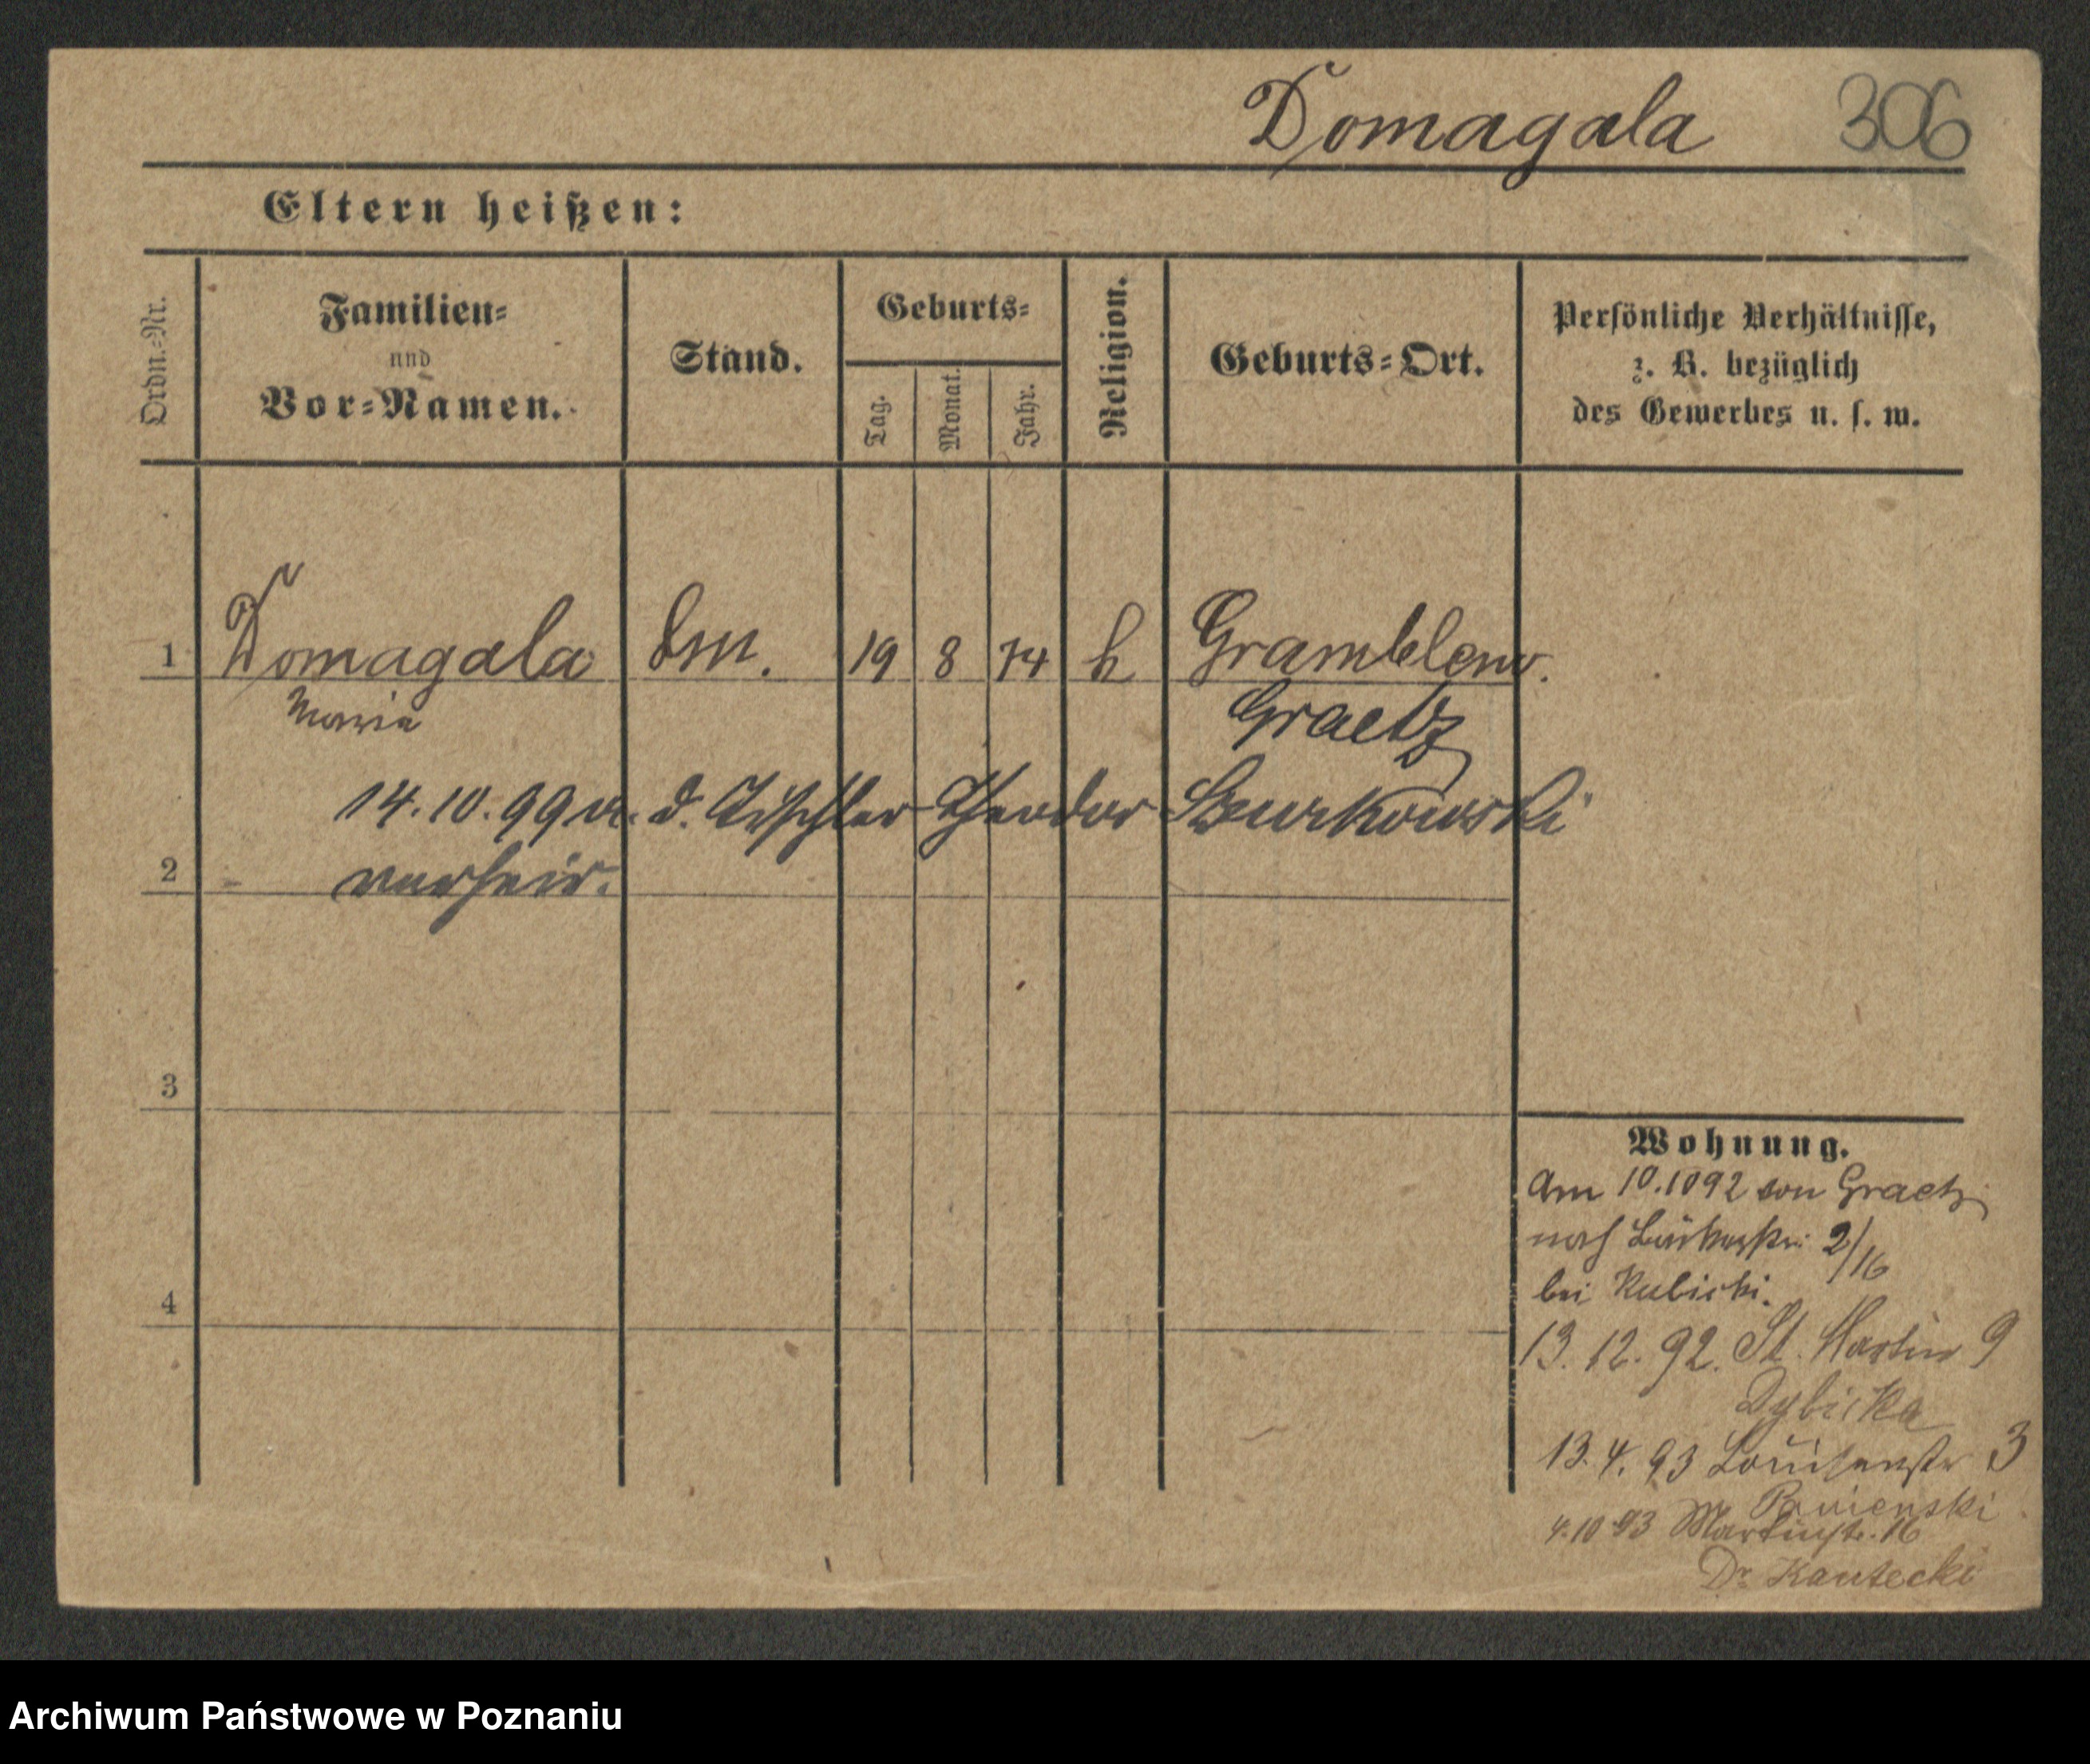 Domagala 306
Eltern heißen:
Ordn.-Nr.
Familien-
und
Vor-Namen.
Stand.
Geburts-
Tag.
Monat.
Jahr.
Religion.
Geburts-Ort.
Persönliche Verhältnisse,
z. B. bezüglich
des Gewerbes u. s. w.
1 Domagala 19 8 74 k
Maria Graetz
14.10.99 m. d. Tischler Theodor
2 verheir.
3
Wohnung.
Am 10.10 92 von Graetz
nach 2/16
bei Rubicki.
4
13. 12. 92. St. Martin 9
Dybicka
13. 4. 93 Louisenstr 3
4.10 93 Martinstr. 16
Dr Kantecki
Archiwum Państwowe w Poznaniu